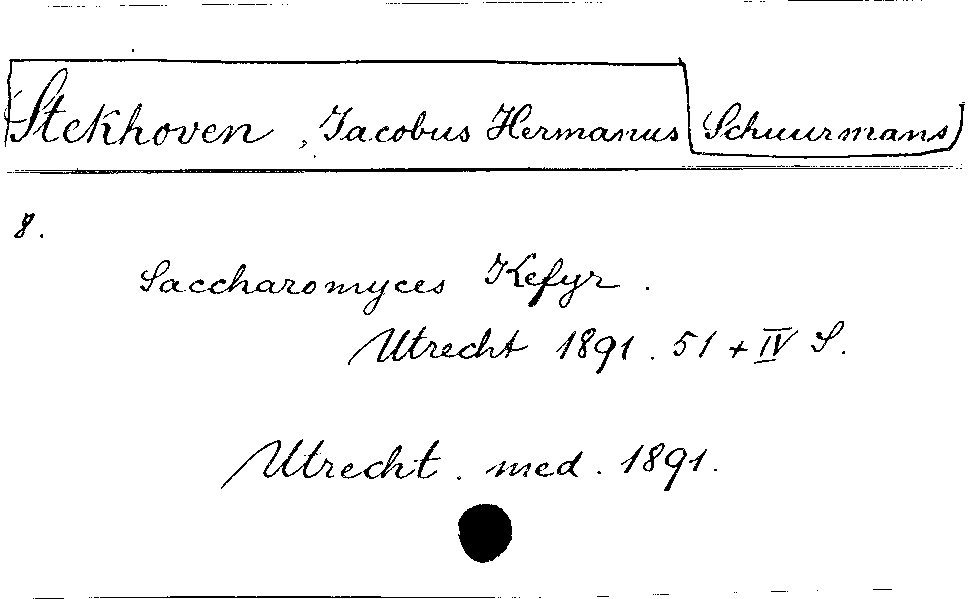 Stekhoven, Jacobus Hermanus (Schuurmans)
8.
Saccharomyces Kefyr.
Utrecht 1891. 51 + IV S.
Utrecht. med. 1891.